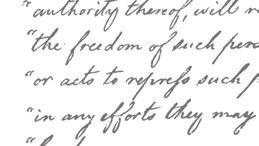 “authority thereof, will r
“the freedom of such pers
“or acts to repress such p
“in any efforts they may